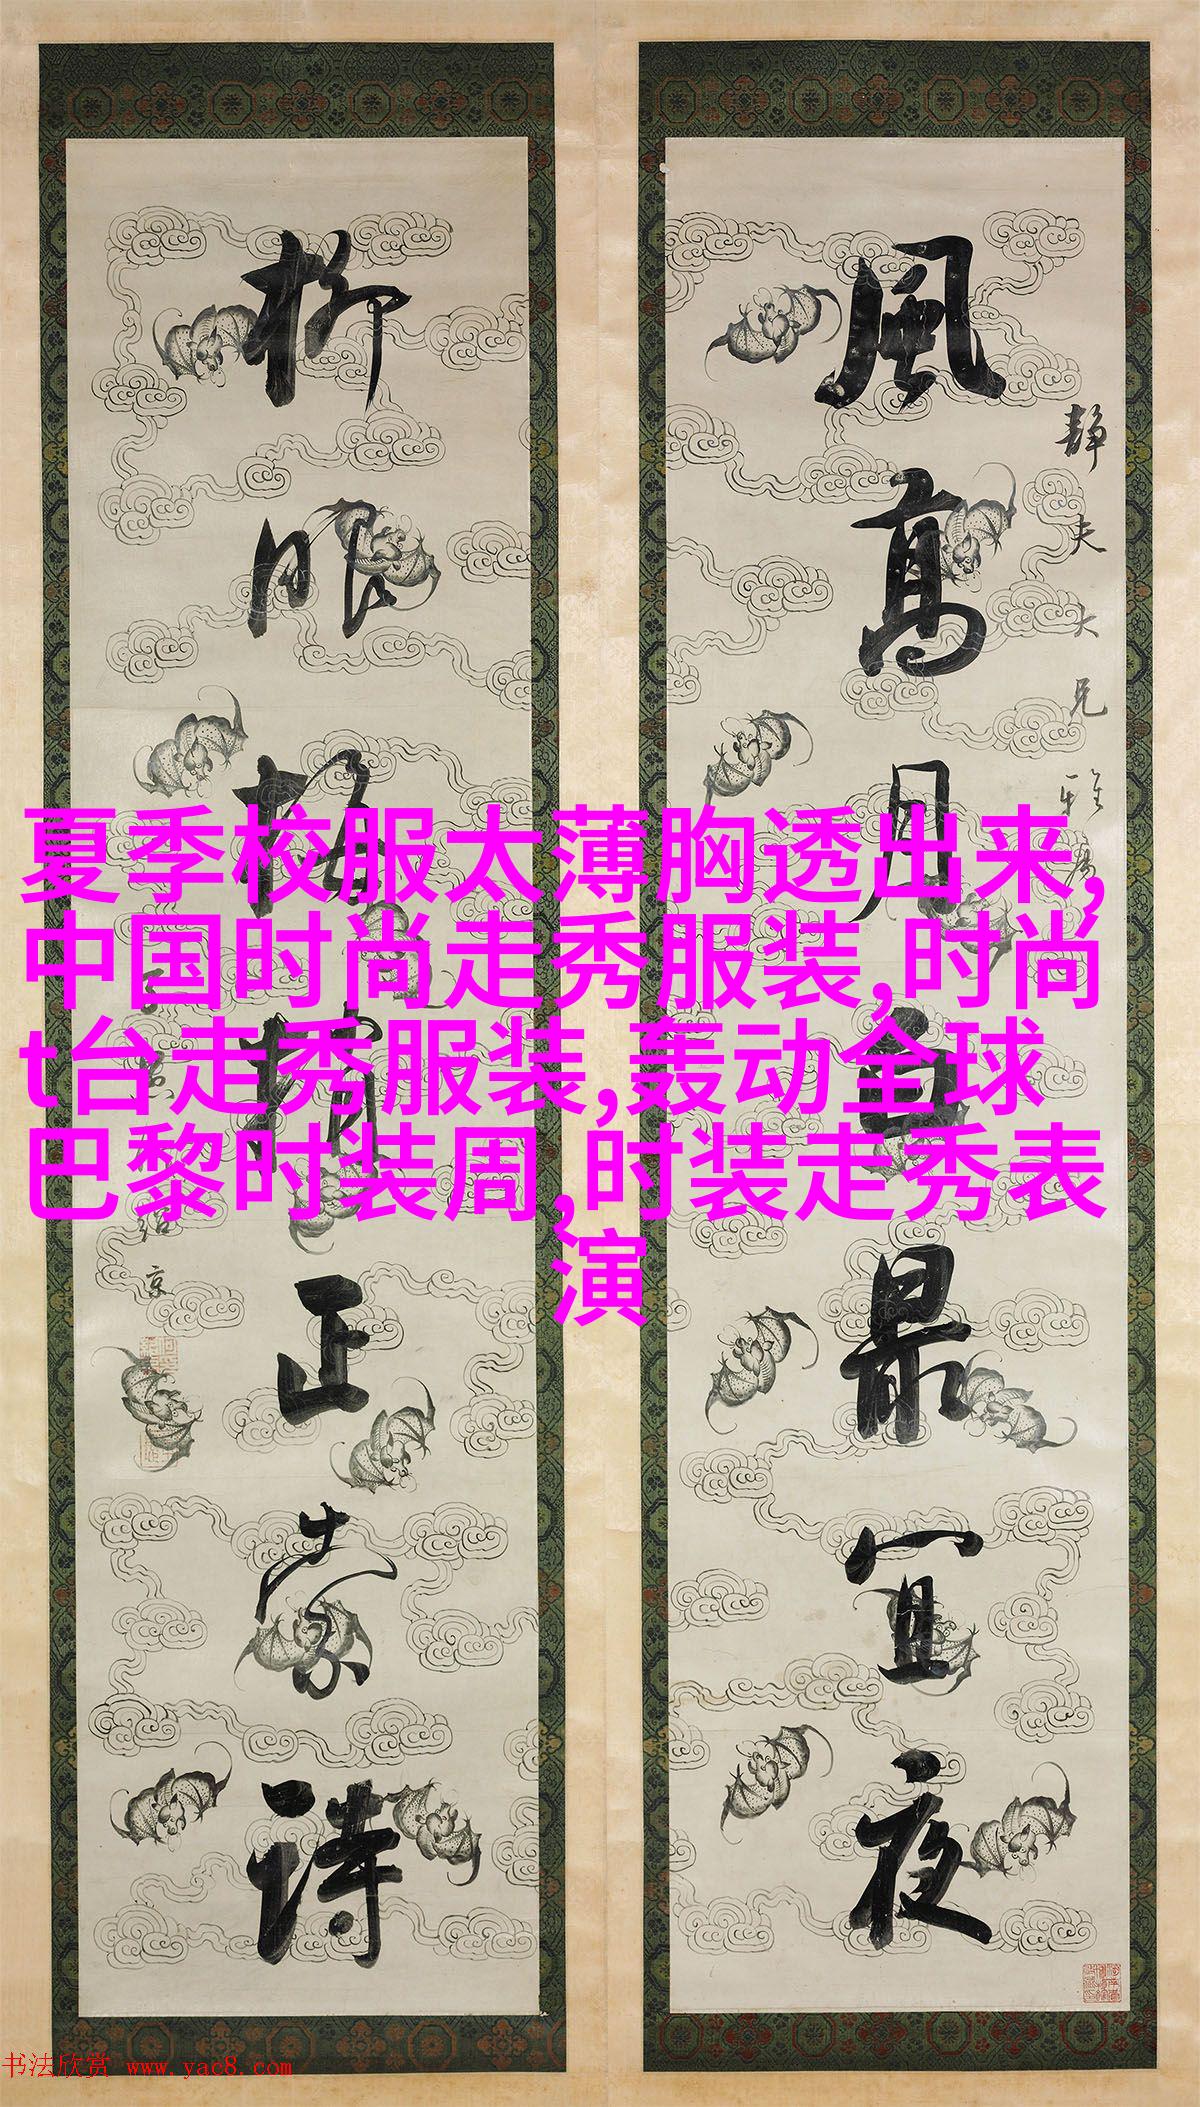 風高月白最宜夜
静夫大兄雅属
柳眼梅精正索詩
夏季校服太薄胸透出来,
中国时尚走秀服装,时尚
t台走秀服装,轰动全球
巴黎时装周,时装走秀表
演
书法欣赏 www.yac8.com